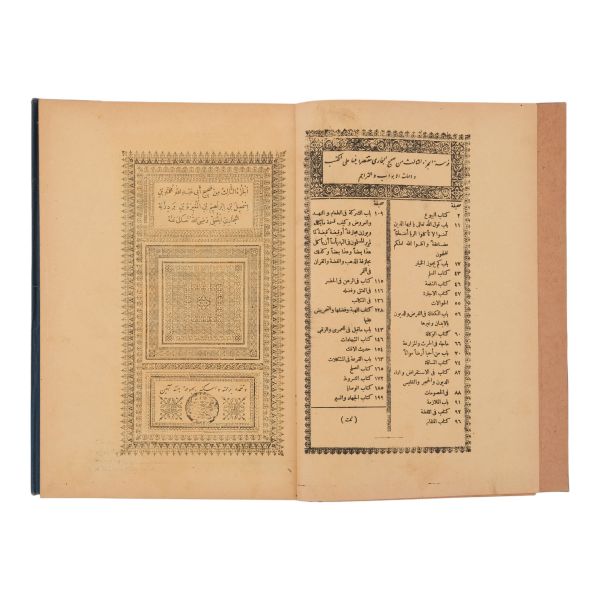 الجزء الثالث من صحيح أبي عبد الله محمد بن
اسمعيل بن ابراهيم بن المغيرة بن بردزبه
البخارى الجعفى رضى الله تعالى عنه
فهرسة الجزء الثالث من صحيح البخارى مقتصرا فيها على الكتب
وأمهات الابواب والتراجم
صحيفة
٢ كتاب البيوع
١١ باب قول الله تعالى يا أيها الذين
آمنوا لا تأكلوا الربا أضعافا
مضاعفة واتقوا الله لعلكم
تفلحون
١٧ باب كم يجوز الخيار
٤٣ كتاب السلم
٤٧ كتاب الشفعة
٥٢ كتاب الاجارة
٥٥ الحوالات
باب الكفالة فى القرض والديون
بالابدان وغيرها
٦٠ كتاب الوكالة
ماجاء فى الحرث والمزارعة
باب من أحيا أرضا مواتا
كتاب المساقاة
كتاب فى الاستقراض وأداء
الديون والحجر والتفليس
٨٨ فى الخصومات
٩١ باب الملازمة
٩٤ كتاب فى اللقطة
٩٦ كتاب المظالم
صحيفة
١٠٩ باب الشركة فى الطعام والنهد
والعروض وكيف قسمة مايكال
ويوزن مجازفة أو قبضة قبضة لما
لم ير المسلمون فى النهد بأسا أن يأكل
هذا بعضا وهذا بعضا وكذلك
مجازفة الذهب والفضة والقران
فى التمر
١١٥ كتاب فى الرهن فى الحضر
فى العتق وفضله
فى المكاتب
كتاب الهبة وفضلها والتحريض
عليها
١٤٣ باب ماقيل فى العمرى والرقبى
كتاب الشهادات
حديث الافك
١٦٣ باب القرعة فى المشكلات
١٦٥ كتاب الصلح
كتاب الشروط
كتاب الوصايا
١٩٩ كتاب الجهاد والسير
(تمت)